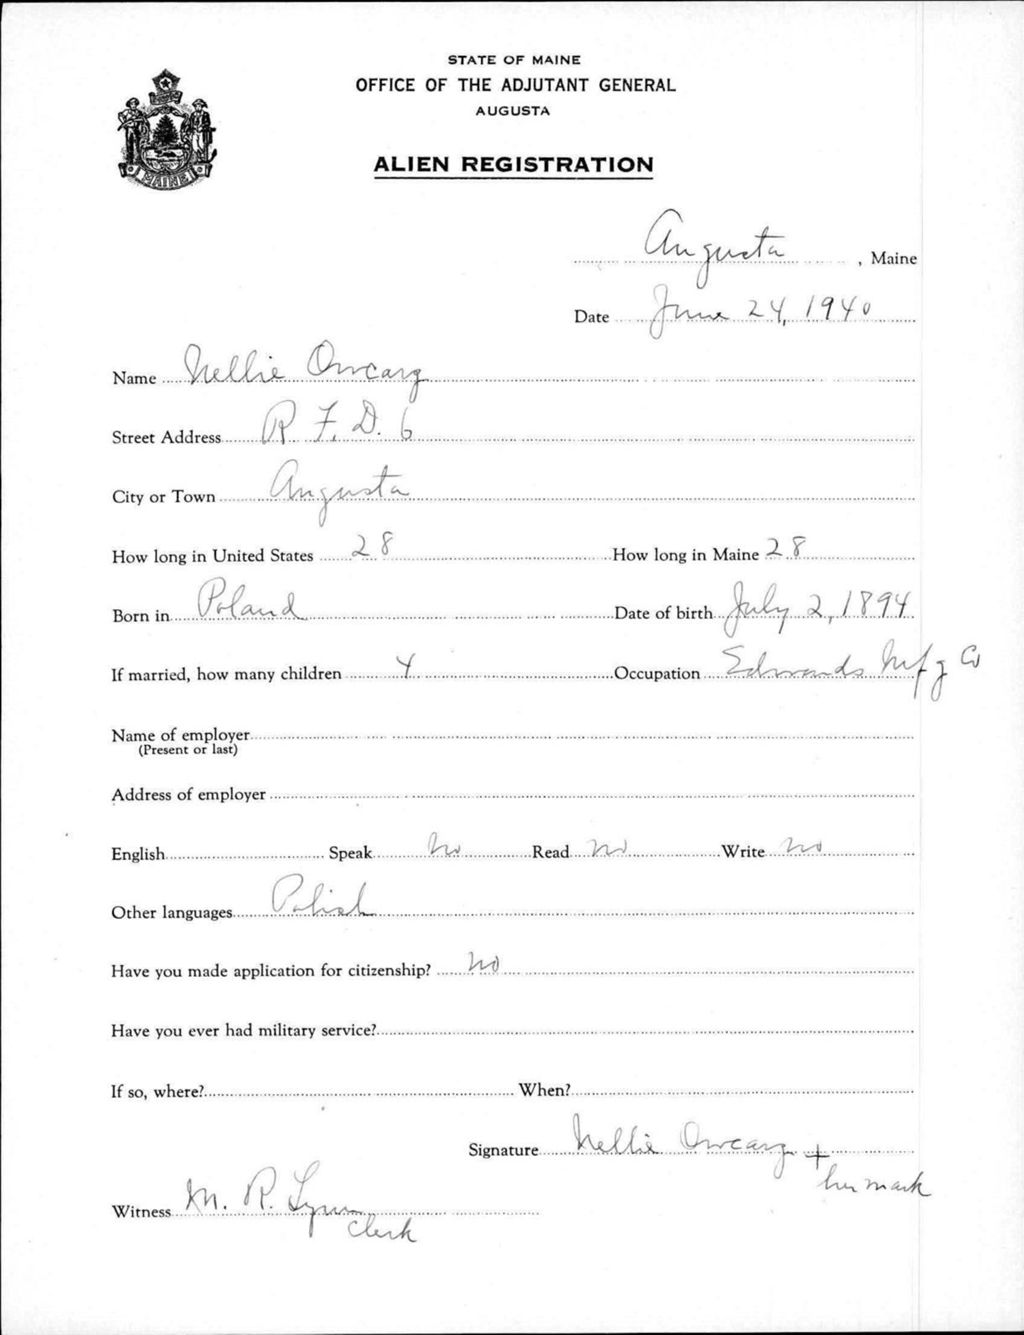 STATE OF MAINE
OFFICE OF THE ADJUTANT GENERAL
AUGUSTA
ALIEN REGISTRATION
MAINE
Augusta, Maine
Date June 24, 1940
Name Nellie Owcarz
Street Address R. F. D. 6
City or Town Augusta
How long in United States 28 How long in Maine 28
Born in Poland Date of birth July 2, 1894
If married, how many children 4 Occupation Edwards Mfg Co
Name of employer
(Present or last)
Address of employer
English Speak No Read No Write No
Other languages Polish
Have you made application for citizenship? No
Have you ever had military service?
If so, where? When?
Signature Nellie Owcarz +
her mark
Witness M. R. Lynn
Clerk